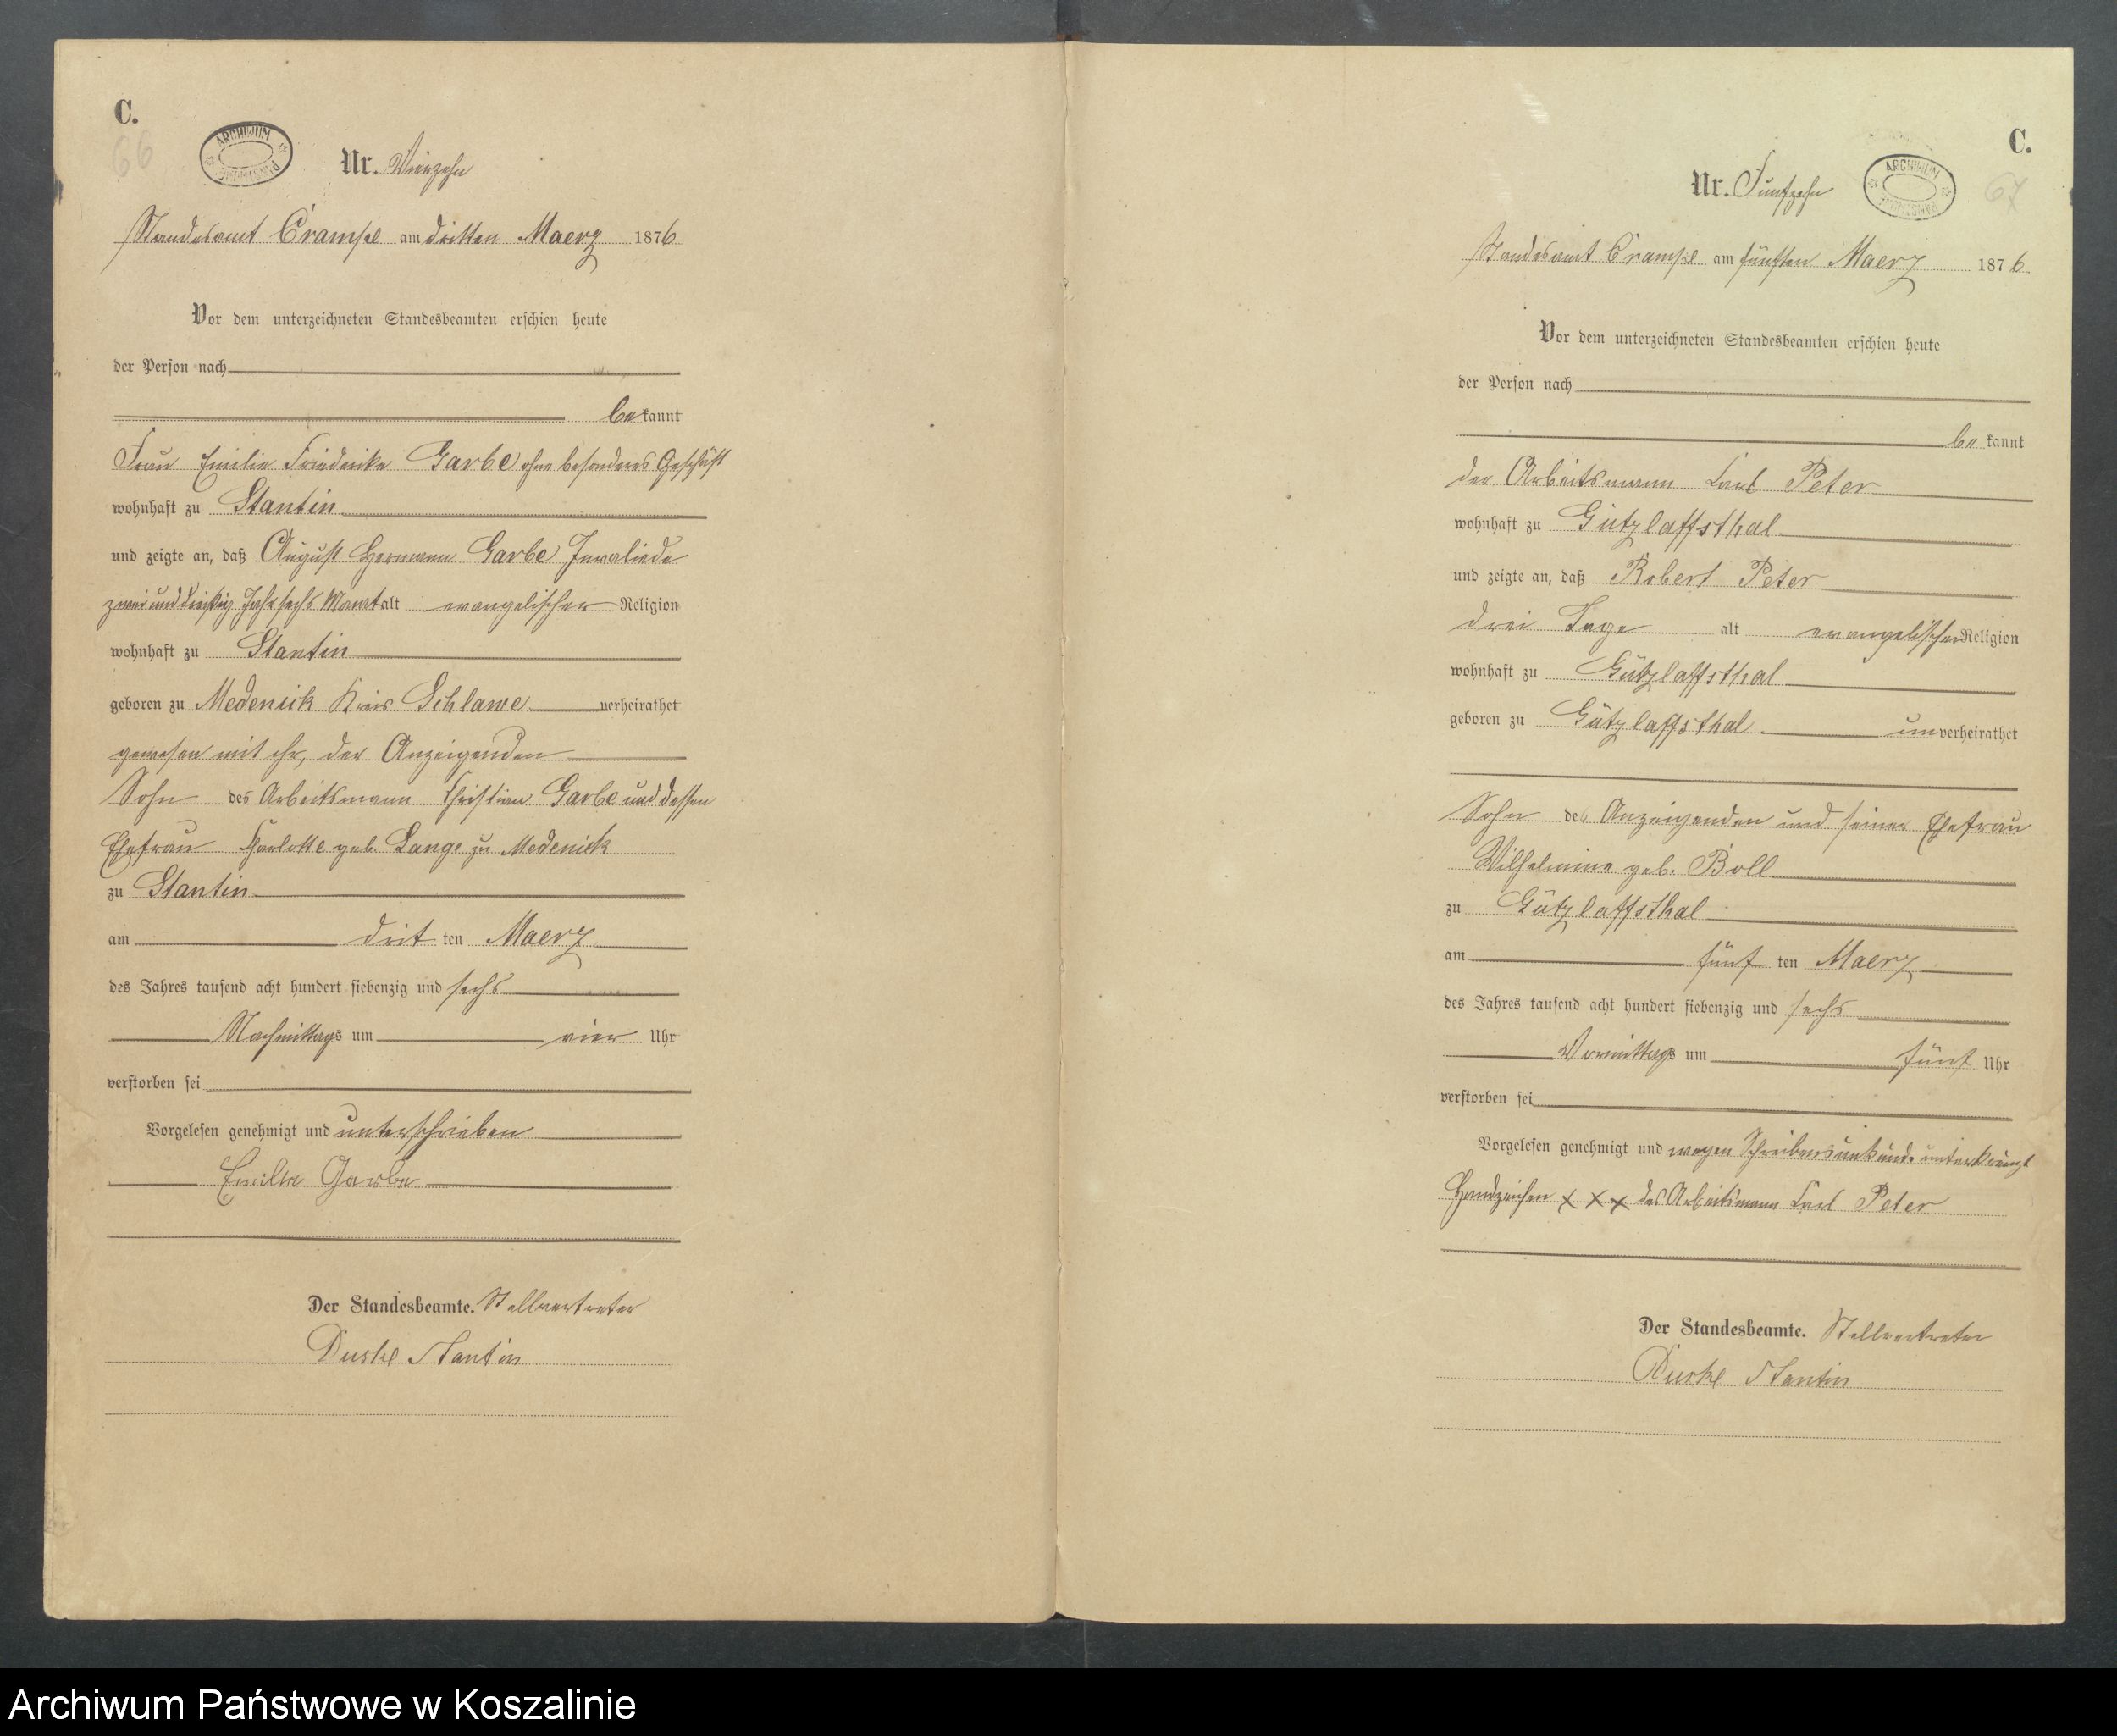 C.
66
ARCHIWUM PAŃSTWOWE
Nr. Vierzehn
Standesamt Crampe am dritten Maerz 1876
Vor dem unterzeichneten Standesbeamten erschien heute
der Person nach
bekannt
Frau Emilie Friederike Garbe ohne besonderes Geschäft
wohnhaft zu Stantin
und zeigte an, daß August Hermann Garbe Invaliede
zwei und dreißig Jahr sechs Monat alt evangelischer Religion
wohnhaft zu Stantin
geboren zu Medenick Kreis Schlawe verheirathet
gewesen mit ihr, der Anzeigenden
Sohn des Arbeitsmann Christian Garbe und dessen
Ehefrau Charlotte geb. Lange zu Medenick
zu Stantin
am drit ten Maerz
des Jahres tausend acht hundert siebenzig und sechs
Nachmittags um vier Uhr
verstorben sei
Vorgelesen genehmigt und unterschrieben
Emilie Garbe
Der Standesbeamte. Stellvertreter
Stantin
C.
67
ARCHIWUM PAŃSTWOWE
Nr. Funfzehn
Standesamt Crampe am fünften Maerz 1876
Vor dem unterzeichneten Standesbeamten erschien heute
der Person nach
be kannt
der Arbeitsmann Carl Peter
wohnhaft zu Gützlaffsthal
und zeigte an, daß Robert Peter
drei Tage alt evangelischer Religion
wohnhaft zu Gützlaffsthal
geboren zu Gützlaffsthal unverheirathet
Sohn des Anzeigenden und seiner Ehefrau
Wilhelmine geb. Boll
zu Gützlaffsthal
am fünf ten Maerz
des Jahres tausend acht hundert siebenzig und sechs
Vormittags um fünf Uhr
verstorben sei
Vorgelesen genehmigt und wegen Schreibensunkunde unterkreuzt
Handzeichen x x x des Arbeitsmann Carl Peter
Der Standesbeamte. Stellvertreter
Stantin
Archiwum Państwowe w Koszalinie